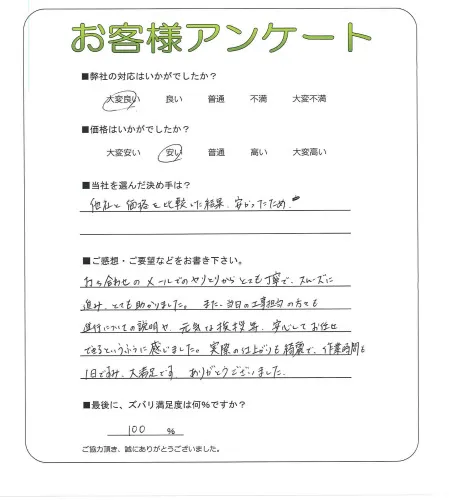 お客様アンケート
■弊社の対応はいかがでしたか?
大変良い 良い 普通 不満 大変不満
■価格はいかがでしたか?
大変安い 安い 普通 高い 大変高い
■当社を選んだ決め手は?
他社と価格を比較した結果、安かったため。
■ご感想・ご要望などをお書き下さい。
打ち合わせのメールでのやりとりからとても丁寧で、スムーズに
進み、とても助かりました。また、当日の工事担当の方も
進行についての説明や、元気な挨拶等、安心してお任せ
できるというふうに感じました。実際の仕上がりも綺麗で、作業時間も
1日で済み、大満足です ありがとうございました。
■最後に、ズバリ満足度は何%ですか?
100 %
ご協力頂き、誠にありがとうございました。